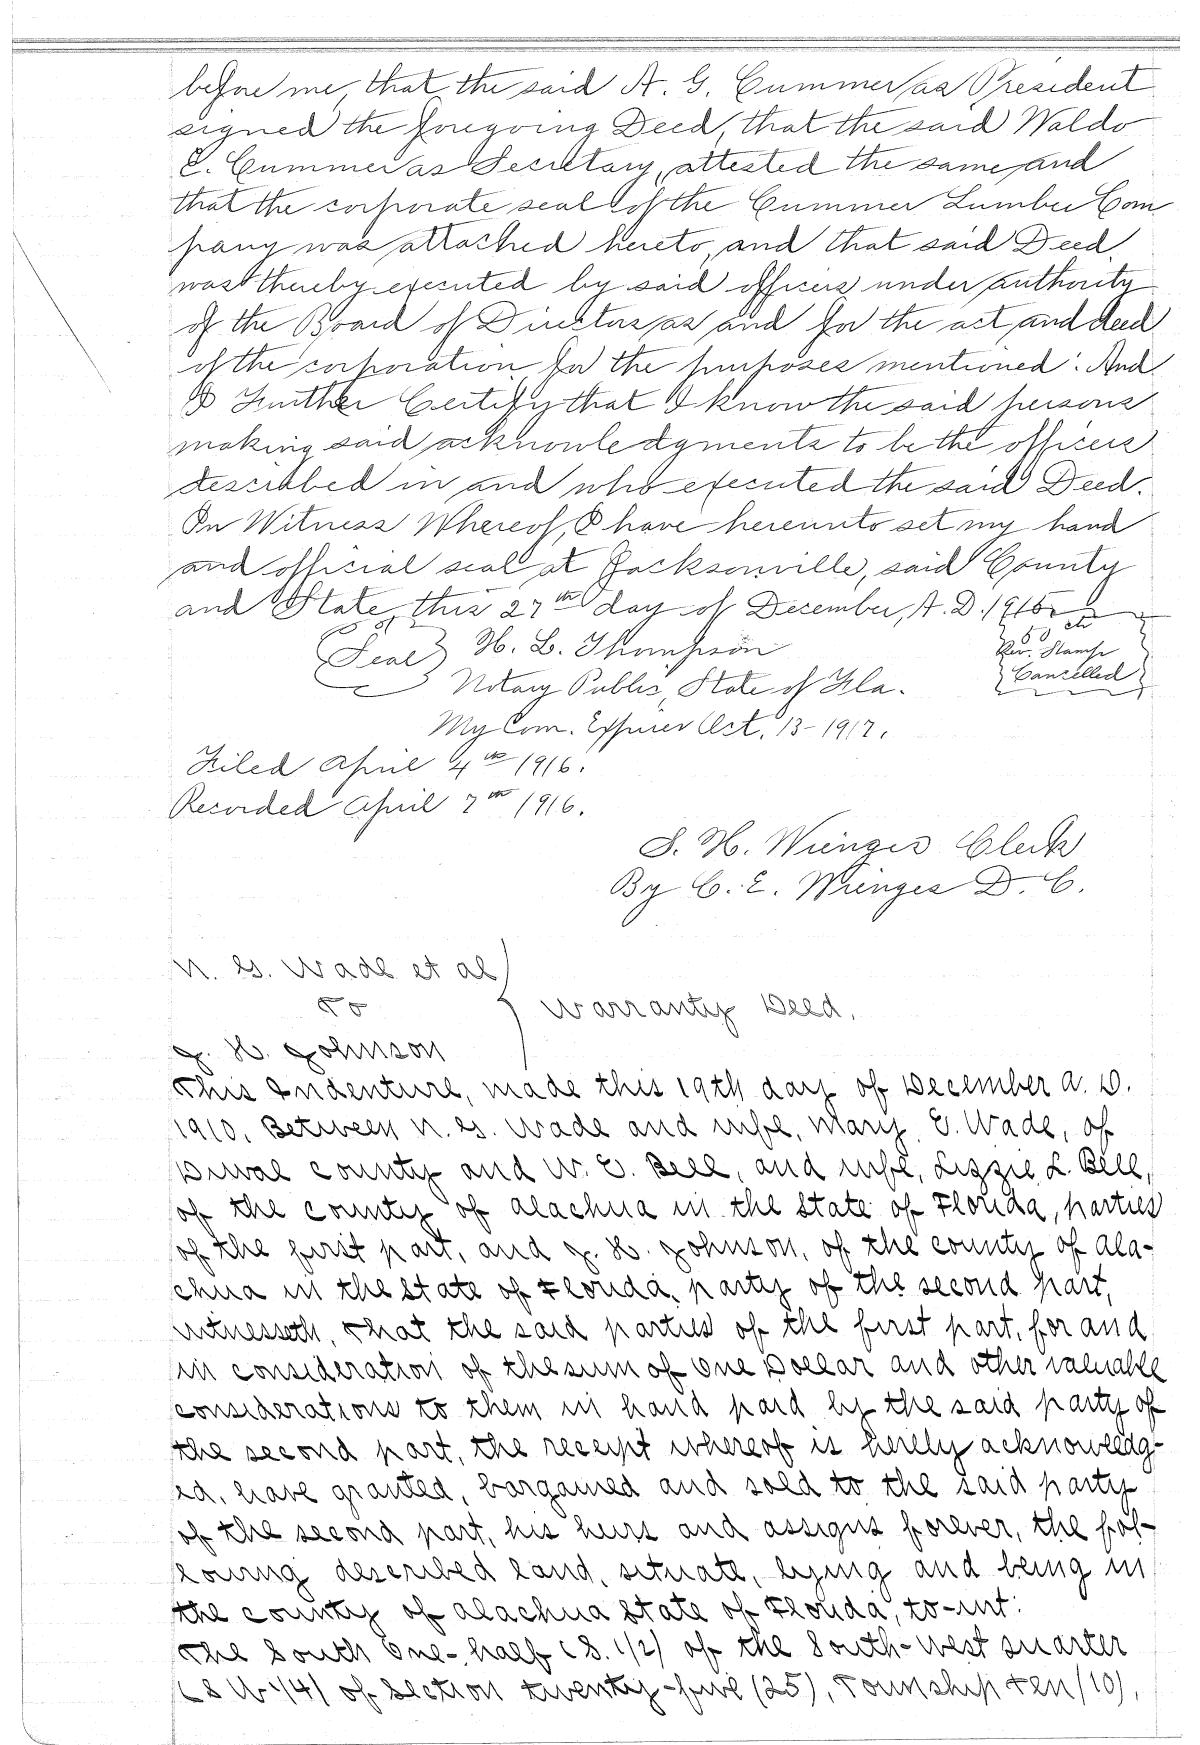 before me, that the said A. G. Cummer as President
signed the foregoing Deed, that the said Waldo
E. Cummer as Secretary, attested the same and
that the corporate seal of the Cummer Lumber Com
pany was attached hereto, and that said Deed
was thereby executed by said officers under authority
of the Board of Directors, as and for the act and deed
of the corporation for the purposes mentioned: And
I Further Certify that I know the said persons
making said acknowledgments to be the officers
described in and who executed the said Deed.
In Witness Whereof, I have hereunto set my hand
and official seal at Jacksonville, said County
and State, this 27th day of December, A.D. 1915.
Seal
H. L. Thompson
50 cts
Rev. Stamps
Cancelled
Notary Public, State of Fla.
My Com. Expires Oct. 13-1917.
Filed April 4th 1916.
Recorded April 7th 1916.
S. H. Wienges Clerk
By C. E. Wienges D. C.
N. G. Wade et al
To
Warranty Deed.
J. H. Johnson
This Indenture, made this 19th day of December A. D.
1910, Between N. G. Wade and wife, Mary E. Wade, of
Duval County and W. E. Bell, and wife, Lizzie L. Bell,
of the County of Alachua in the State of Florida, parties
of the first part, and J. H. Johnson, of the county of Ala-
chua in the State of Florida, party of the second part,
witnesseth, that the said parties of the first part, for and
in consideration of the sum of One Dollar and other valuable
considerations to them in hand paid by the said party of
the second part, the receipt whereof is hereby acknowledg-
ed, have granted, bargained and sold to the said party
of the second part, his heirs and assigns forever, the fol-
lowing described land, situate, lying and being in
the county of Alachua State of Florida, to-wit:
The South One-half (S. 1/2) of the South-west quarter
(S W-1/4) of Section twenty-five (25), Township Ten (10),